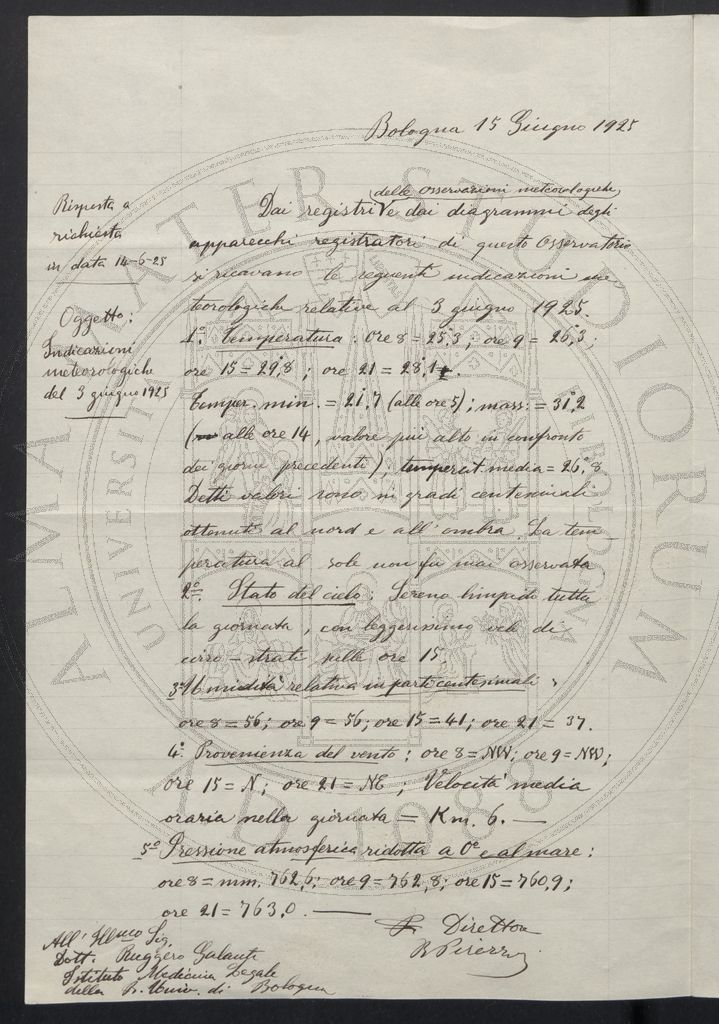 Bologna 15 Giugno 1925
Risposta a
richiesta
in data 14-6-25
Oggetto:
Indicazioni
meteorologiche
del 3 giugno 1925
delle osservazioni meteorologiche
Dai registri e dai diagrammi degli
apparecchi registratori di questo Osservatorio
si ricavano le seguenti indicazioni me
teorologiche relative al 3 giugno 1925.
1º. Temperatura: ore 8 = 25°,3; ore 9 = 26°,3;
ore 15 = 29°,8; ore 21 = 28°,1.
Temper. min. = 21°,7 (alle ore 5); mass. = 31°,2
(alle ore 14, valore più alto in confronto
dei giorni precedenti), temperat. media = 26°,8
Detti valori sono in gradi centesimali
ottenuti al nord e all'ombra. La tem
peratura al sole non fu mai osservata
2º. Stato del cielo: Sereno limpido tutta
la giornata, con leggerissimo velo di
cirro-strati nelle ore 15.
3º Umidità relativa in parti centesimali:
ore 8 = 56; ore 9 = 56; ore 15 = 41; ore 21 = 37.
4º. Provenienza del vento: ore 8 = NW; ore 9 = NW;
ore 15 = N; ore 21 = NE; Velocità media
oraria nella giornata = Km. 6. —
5º Pressione atmosferica ridotta a 0° e al mare:
ore 8 = mm. 762,6; ore 9 = 762,8; ore 15 = 760,9;
ore 21 = 763,0. —
Direttore
All' Illmo Sig.
Dott. Ruggero Galanti
Istituto Medicina Legale
della R. Univ. di Bologna
ALMA MATER STUDIORUM
A.D. 1088